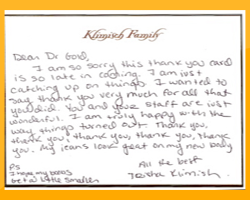 Klimisch Family
Dear Dr Gord,
I am so sorry this thank you card
is so late in coming. I am just
catching up on things. I wanted to
say thank you very much for all that
you did. You and your staff are just
wonderful. I am truly happy with the
way things turned out. Thank you,
thank you, thank you, thank you, thank
you. My jeans look great on my new body
All the best
PS
I hope my boobs
get a little smaller
Klimisch.